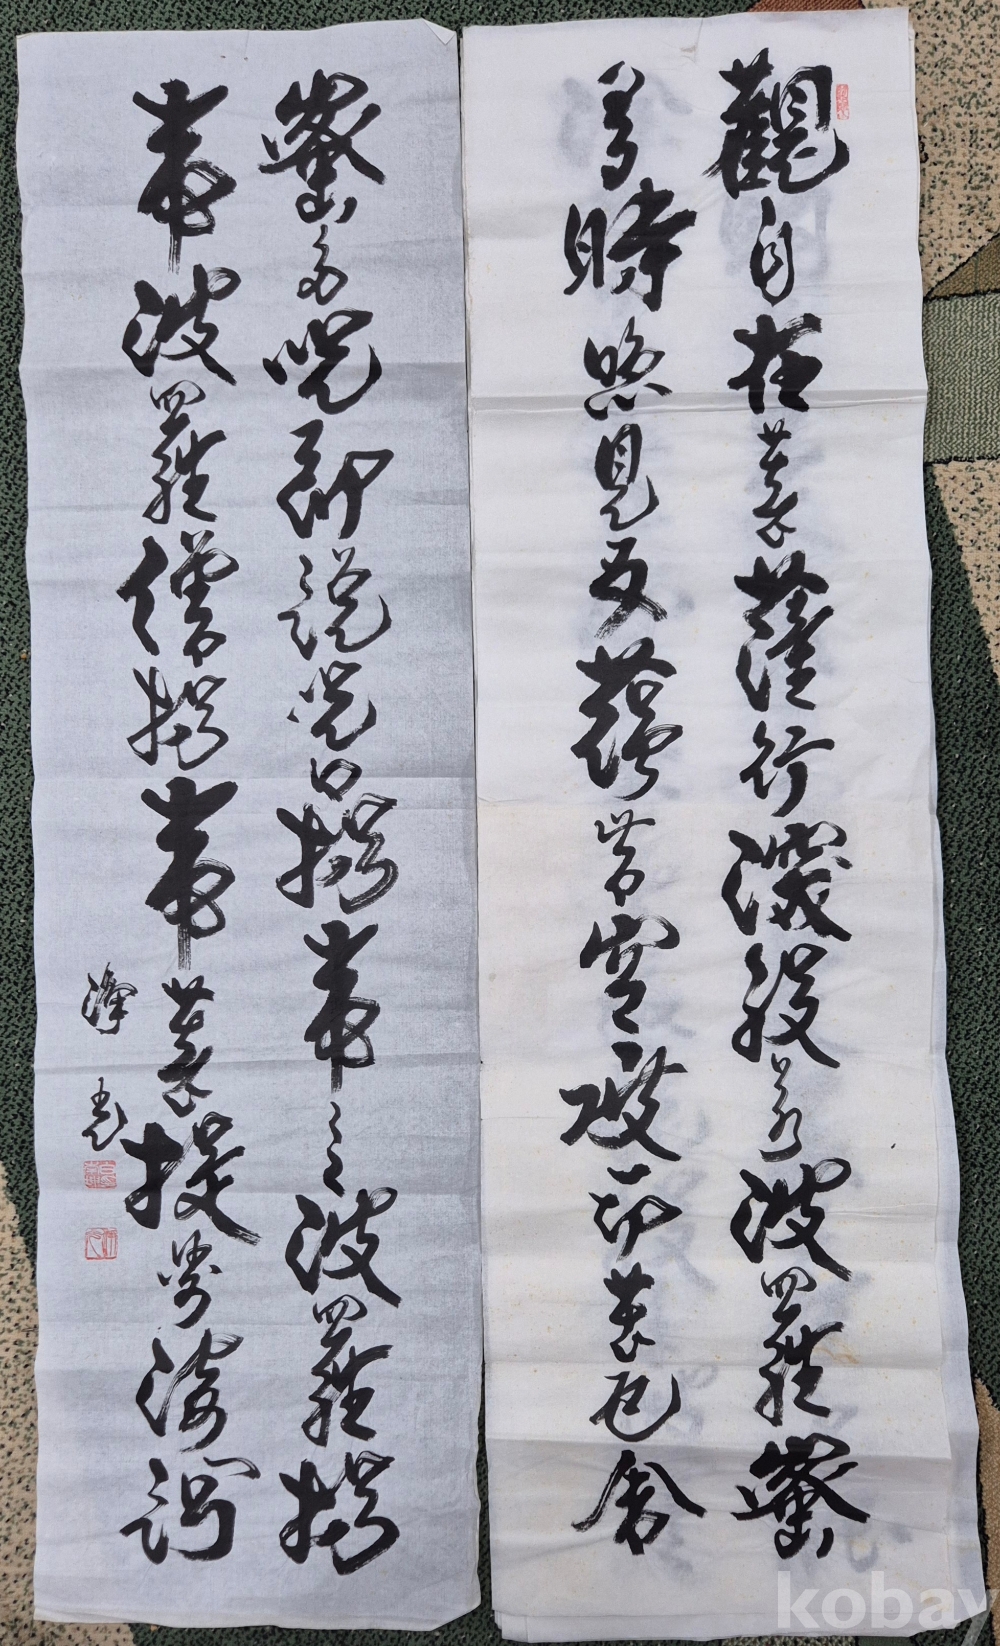 觀自在菩薩行深般若波羅蜜
多時照見五蘊皆空度一切苦厄舍
蜜多呪即說呪曰揭帝〻波羅揭
帝波羅僧揭帝菩提娑婆訶
kobay